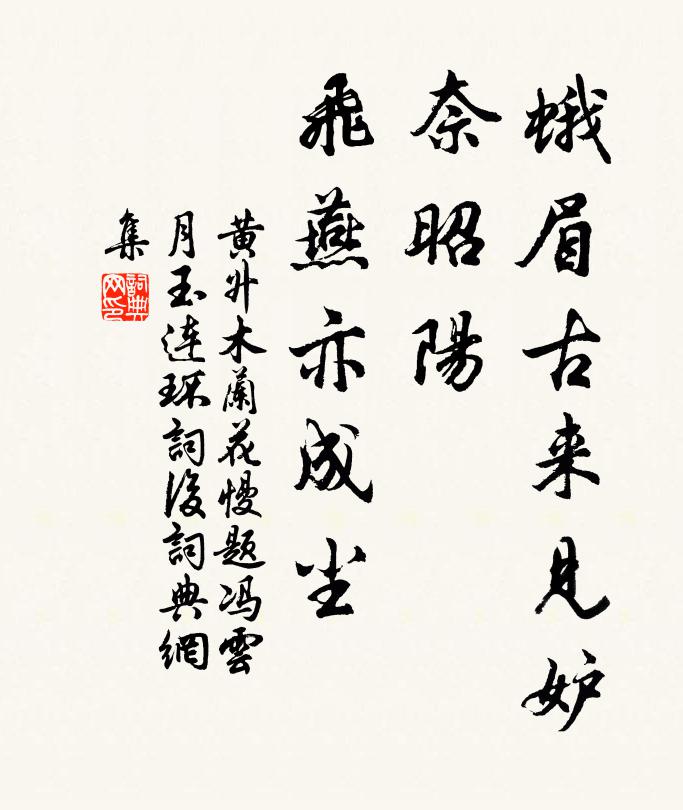 蛾眉古来見妒
奈昭陽
飛燕亦成尘
黄升木蘭花慢題冯雲
月玉连环詞後詞典網
集
詞典
网印